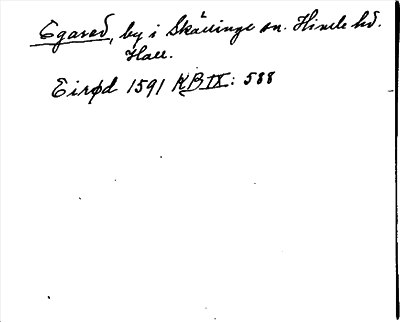 Egared, by i Skällinge sn. Himle hd.
Hall.
Eirød 1591 KB IX: 588